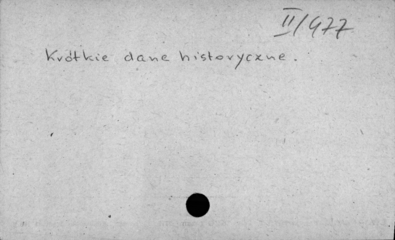 II/477
Krótkie dane historyczne.